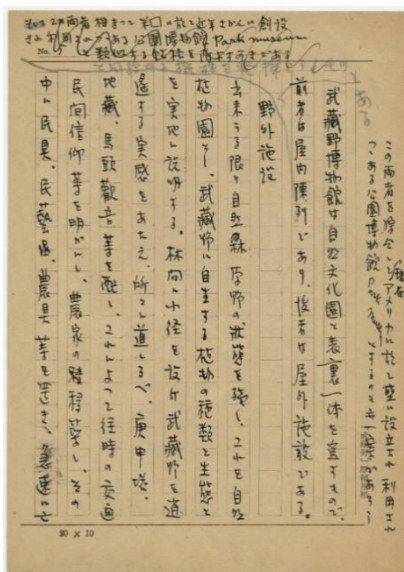 この両者相まつて米国に於て近年さかんに創設
され利用
公園博物館 Park museum
No.
この両者を綜合しアメリカに於て盛に設立され利用され
つゝある公園博物館 とするのも一案であろう
武蔵野博物館は自然文化園と表裏一体を為すもので、
前者は屋内陳列であり、後者は屋外施設である。
野外施設
出来うる限り自然森、原野の状態を残し、これを自然
植物園とし、武蔵野に自生する植物の種類と生態と
を実地に説明する。林間に小径を設け武蔵野を逍
遥する実感をあたえ、所々に道しるべ、庚申塔、
地蔵、馬頭観音等を配し、これによつて往時の交通
民間信仰等を明かにし、農家の 移築し、その
中に民具、民藝品、農具等を置き、急速に亡
20 × 10